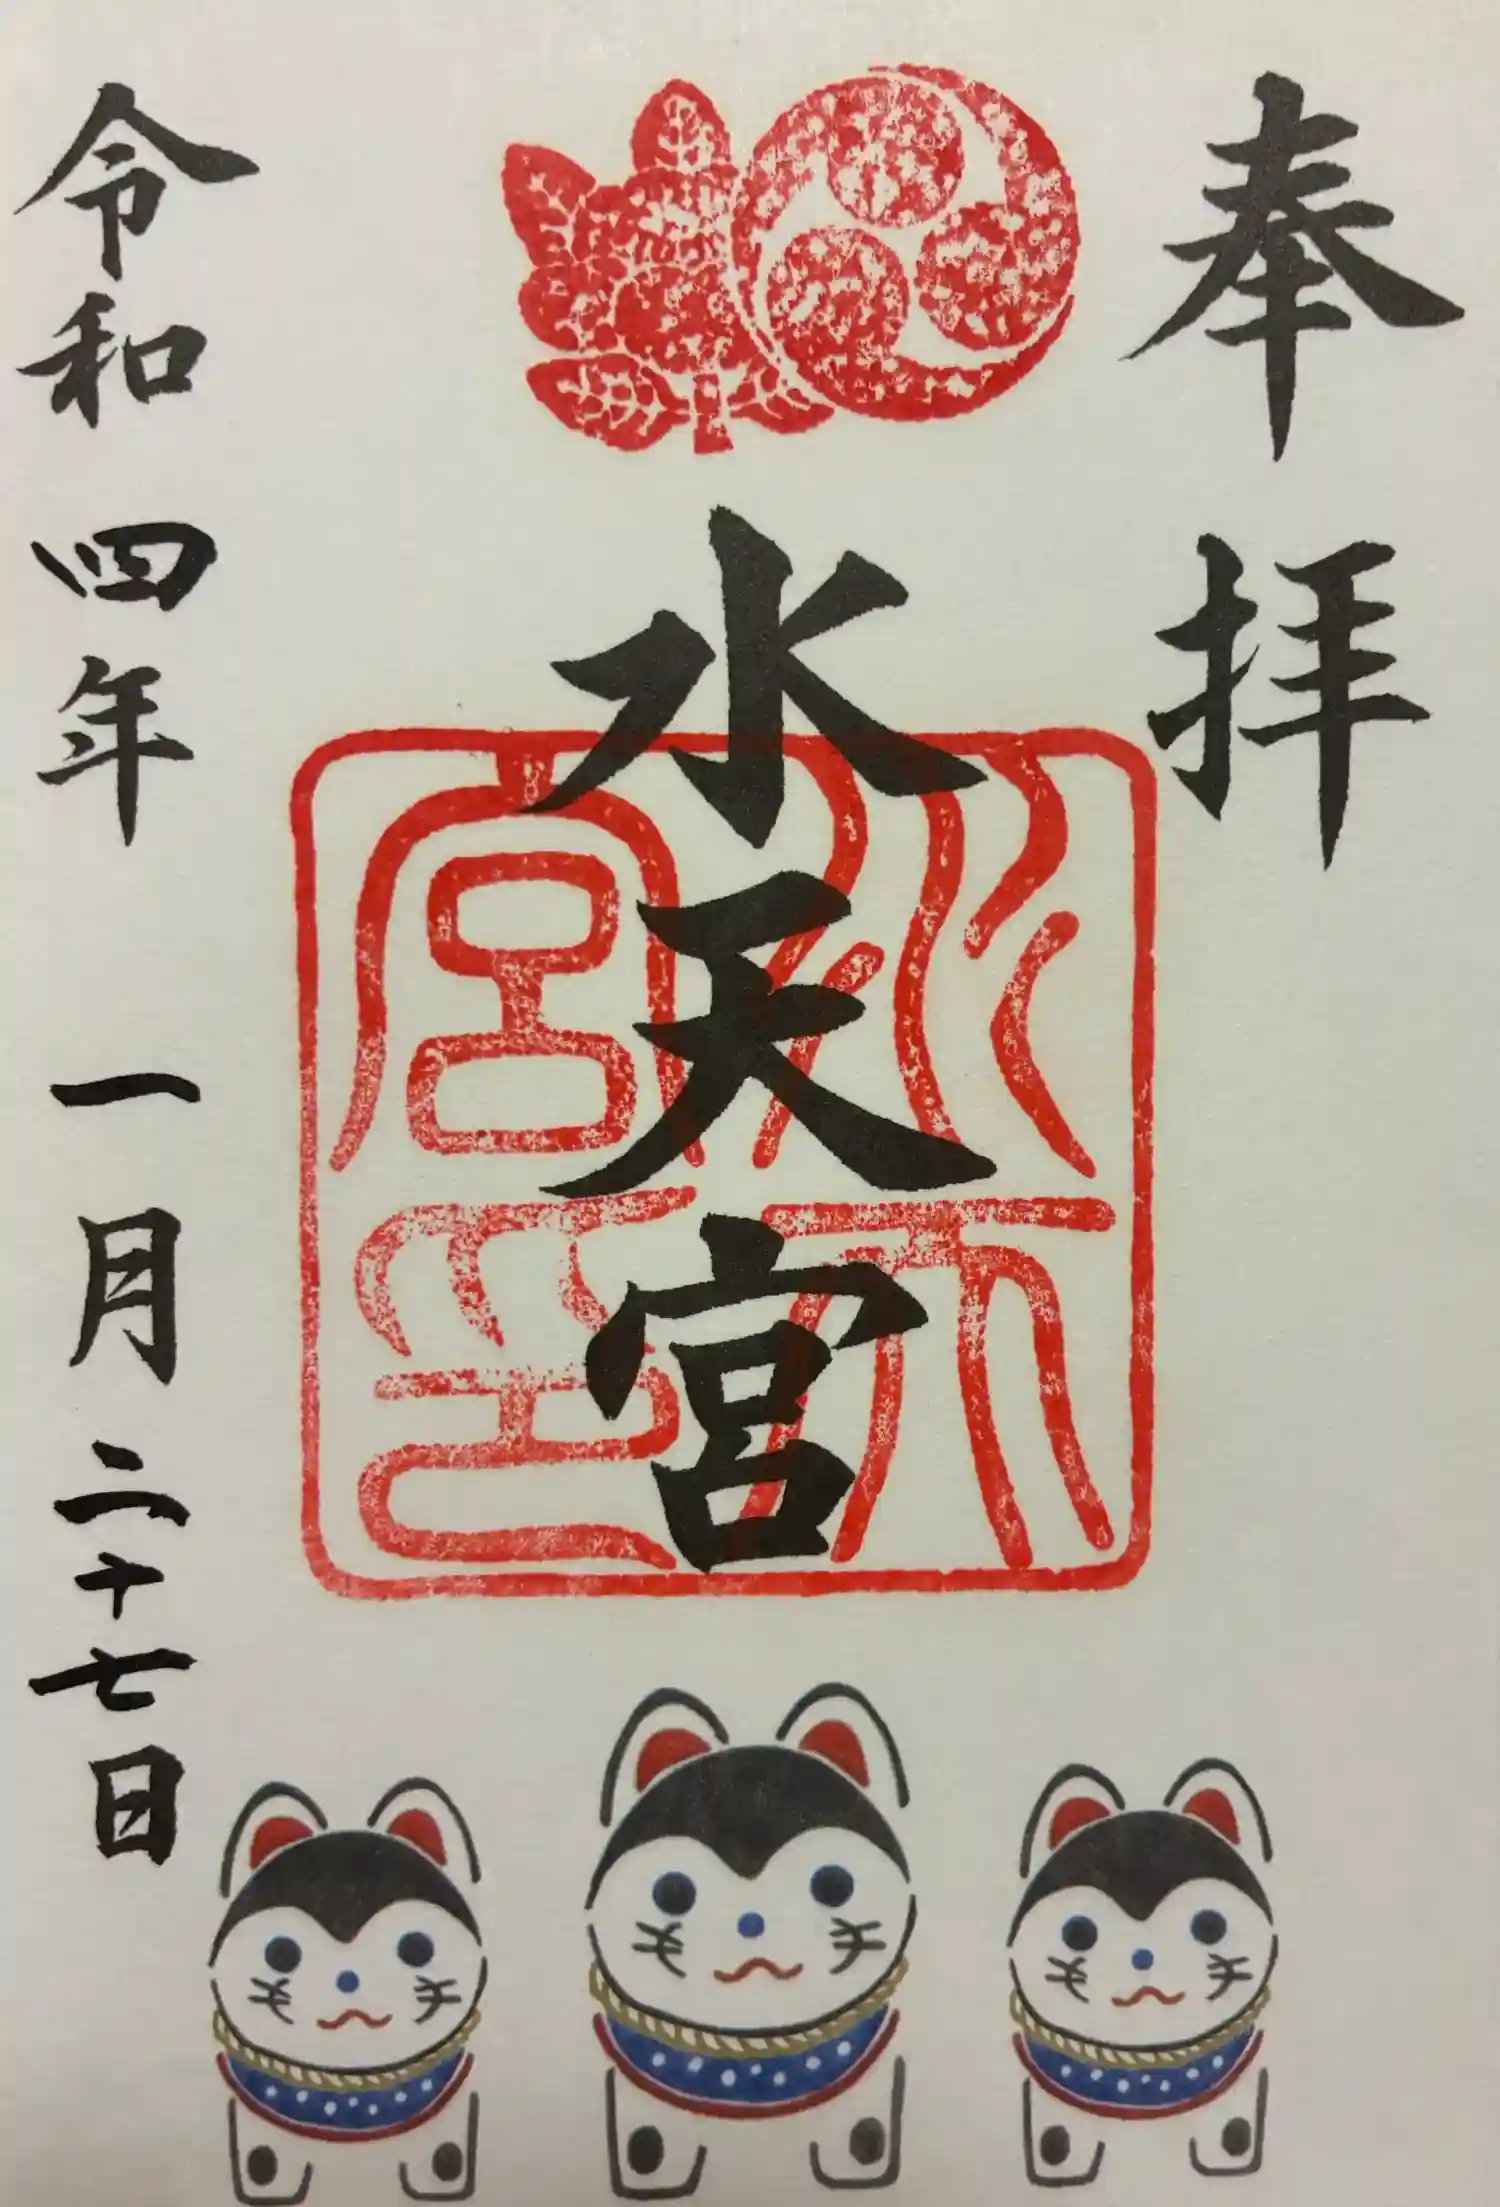 奉拝
水天宮
水天宮印
令和四年一月二十七日